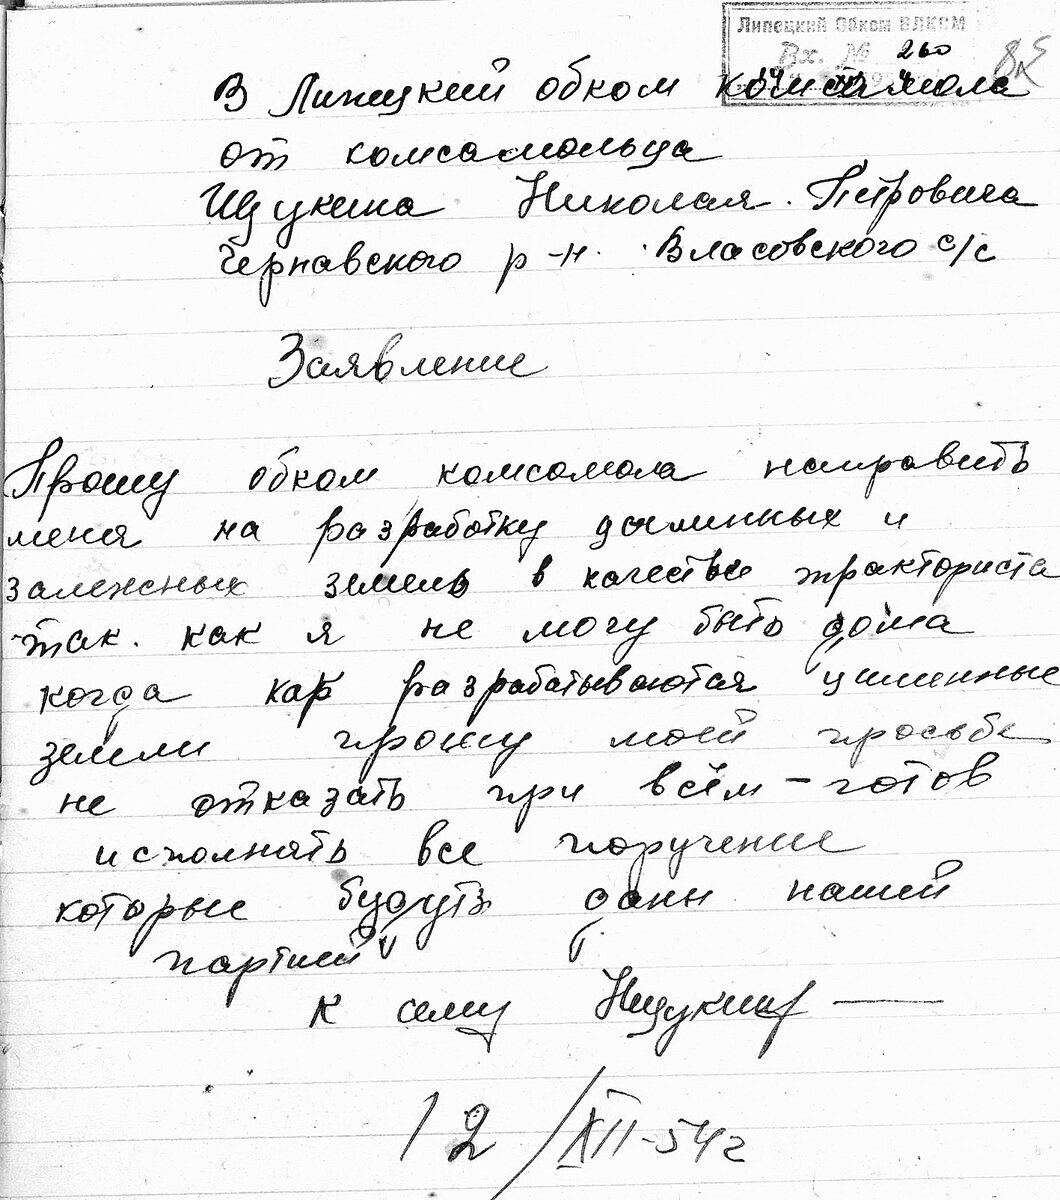 Липецкий Обком ВЛКСМ
Вх. № 260
В Липецкий обком комсомола
от комсамольца
Щукина Николая Петровича
Чернавского р-н. Власовского с/с
Заявление
Прошу обком комсомола направить
меня на разработку цылинных и
залежных земель в качестве тракториста
так. как я не могу быть дома
когда разрабатываются цилинные
земли прошу моей просьбе
не отказать при всём - готов
исполнять все поручение
которые будуть даны нашей
партией
к сему НЩукин
12/XII-54г